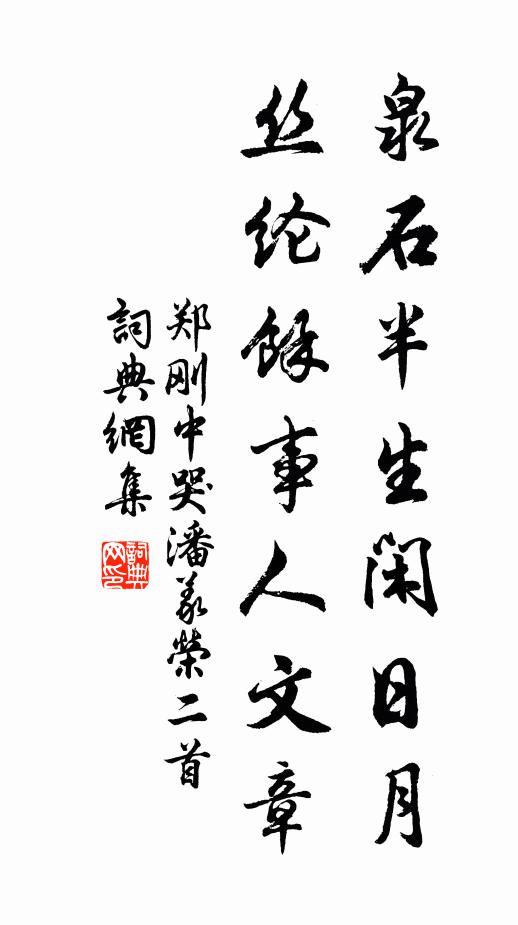 泉石半生闲日月
丝纶馀事人文章
郑刚中哭潘义荣二首
詞典網集
詞典
网印